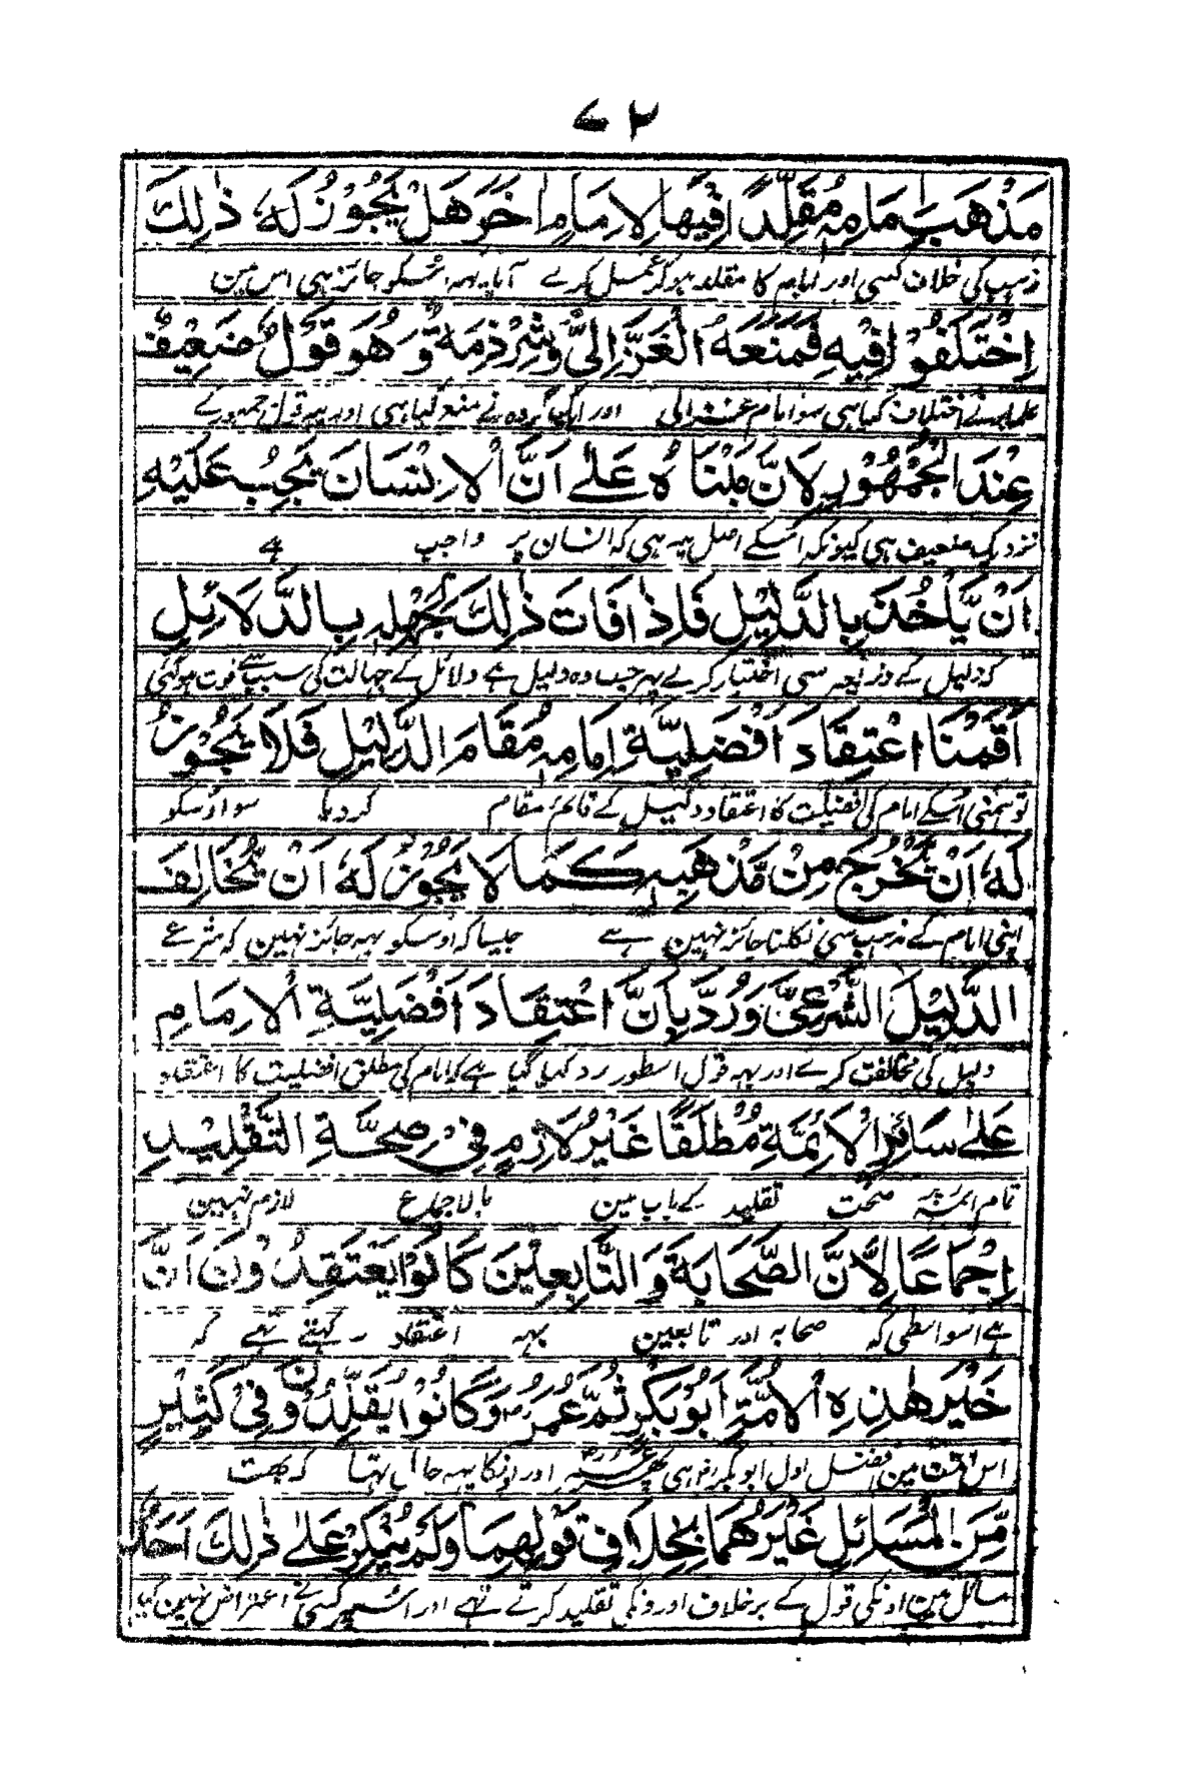 ٧٢
مَذْهَبَ اِمَامِهٖ مُقَلِّدًا فِيْهَا لِاِمَامٍ اٰخَرَ هَلْ يَجُوْزُ لَهٗ ذٰلِكَ
مذہب کی خلاف کسی اور امام کا مقلد ہوکر عمل کرے آیا یہہ اسکو جائز ہی اس مین
اِخْتَلَفُوْا فِيْهِ فَمَنَعَهُ الْغَزَّالِيُّ وَشِرْذِمَةٌ وَهُوَ قَوْلٌ ضَعِيْفٌ
علماء نے اختلاف کیا ہی سو امام غزالی اور ایک گروہ نے منع کیا ہی اور یہہ قول جمہور کے
عِنْدَ الْجُمْهُوْرِ لِاَنَّ مَبْنَاهُ عَلٰى اَنَّ الْاِنْسَانَ يَجِبُ عَلَيْهِ
نزدیک ضعیف ہی کیونکہ اسکے اصل یہہ ہی کہ انسان پر واجب ہے
اَنْ يَّاْخُذَ بِالدَّلِيْلِ فَاِذَا فَاتَ ذٰلِكَ بِجَهْلِهٖ بِالدَّلَائِلِ
کہ دلیل کے ذریعہ سی اختیار کرے پہر جب وہ دلیل ہے دلائل کے جہالت کی سبب سے فوت ہوگئی
اَقَمْنَا اعْتِقَادَ اَفْضَلِيَّةِ اِمَامِهٖ مُقَامَ الدَّلِيْلِ فَلَا يَجُوْزُ
تو ہمنی اسکے امام کی افضیلت کا اعتقاد دلیل کے قائم مقام کردیا سو اوسکو
لَهٗ اَنْ يَّخْرُجَ مِنْ مَّذْهَبِهٖ كَمَا لَا يَجُوْزُ لَهٗ اَنْ يُّخَالِفَ
اپنی امام کے مذہب سی نکلنا جائز نہین ہے جیسا کہ اوسکو یہہ جائز نہین کہ شرعے
الدَّلِيْلَ الشَّرْعِيَّ وَرُدَّ بِاَنَّ اعْتِقَادَ اَفْضَلِيَّةِ الْاِمَامِ
دلیل کی مخالفت کرے اور یہہ قول اسطور رد کیا گیا ہے کہ امام کی مطلق افضلیت کا اعتقاد
عَلٰى سَائِرِ الْاَئِمَّةِ مُطْلَقًا غَيْرُ لَازِمٍ فِيْ صِحَّةِ التَّقْلِيْدِ
تمام ائمہ پر صحت تقلید کے باب مین بالاجماع لازم نہین
اِجْمَاعًا لِاَنَّ الصَّحَابَةَ وَالتَّابِعِيْنَ كَانُوْا يَعْتَقِدُوْنَ اَنَّ
ہے اسواسطی کہ صحابہ اور تابعین یہہ اعتقاد رکہتے تہے کہ
خَيْرَ هٰذِهِ الْاُمَّةِ اَبُوْ بَكْرٍ ثُمَّ عُمَرُ وَكَانُوْا يُقَلِّدُوْنَ فِيْ كَثِيْرٍ
اس امت مین افضل اول ابوبکر ہی پھر عمر اور اونکا یہہ حال تہا کہ بہت
مِّنَ الْمَسَائِلِ غَيْرَهُمَا بِخِلَافِ قَوْلِهِمَا وَلَمْ يُنْكِرْ عَلٰى ذٰلِكَ اَحَدٌ
مسائل مین اونکی قول کے برخلاف اورونکی تقلید کرتے تہے اور اسپر کسی نے اعتراض نہین کیا